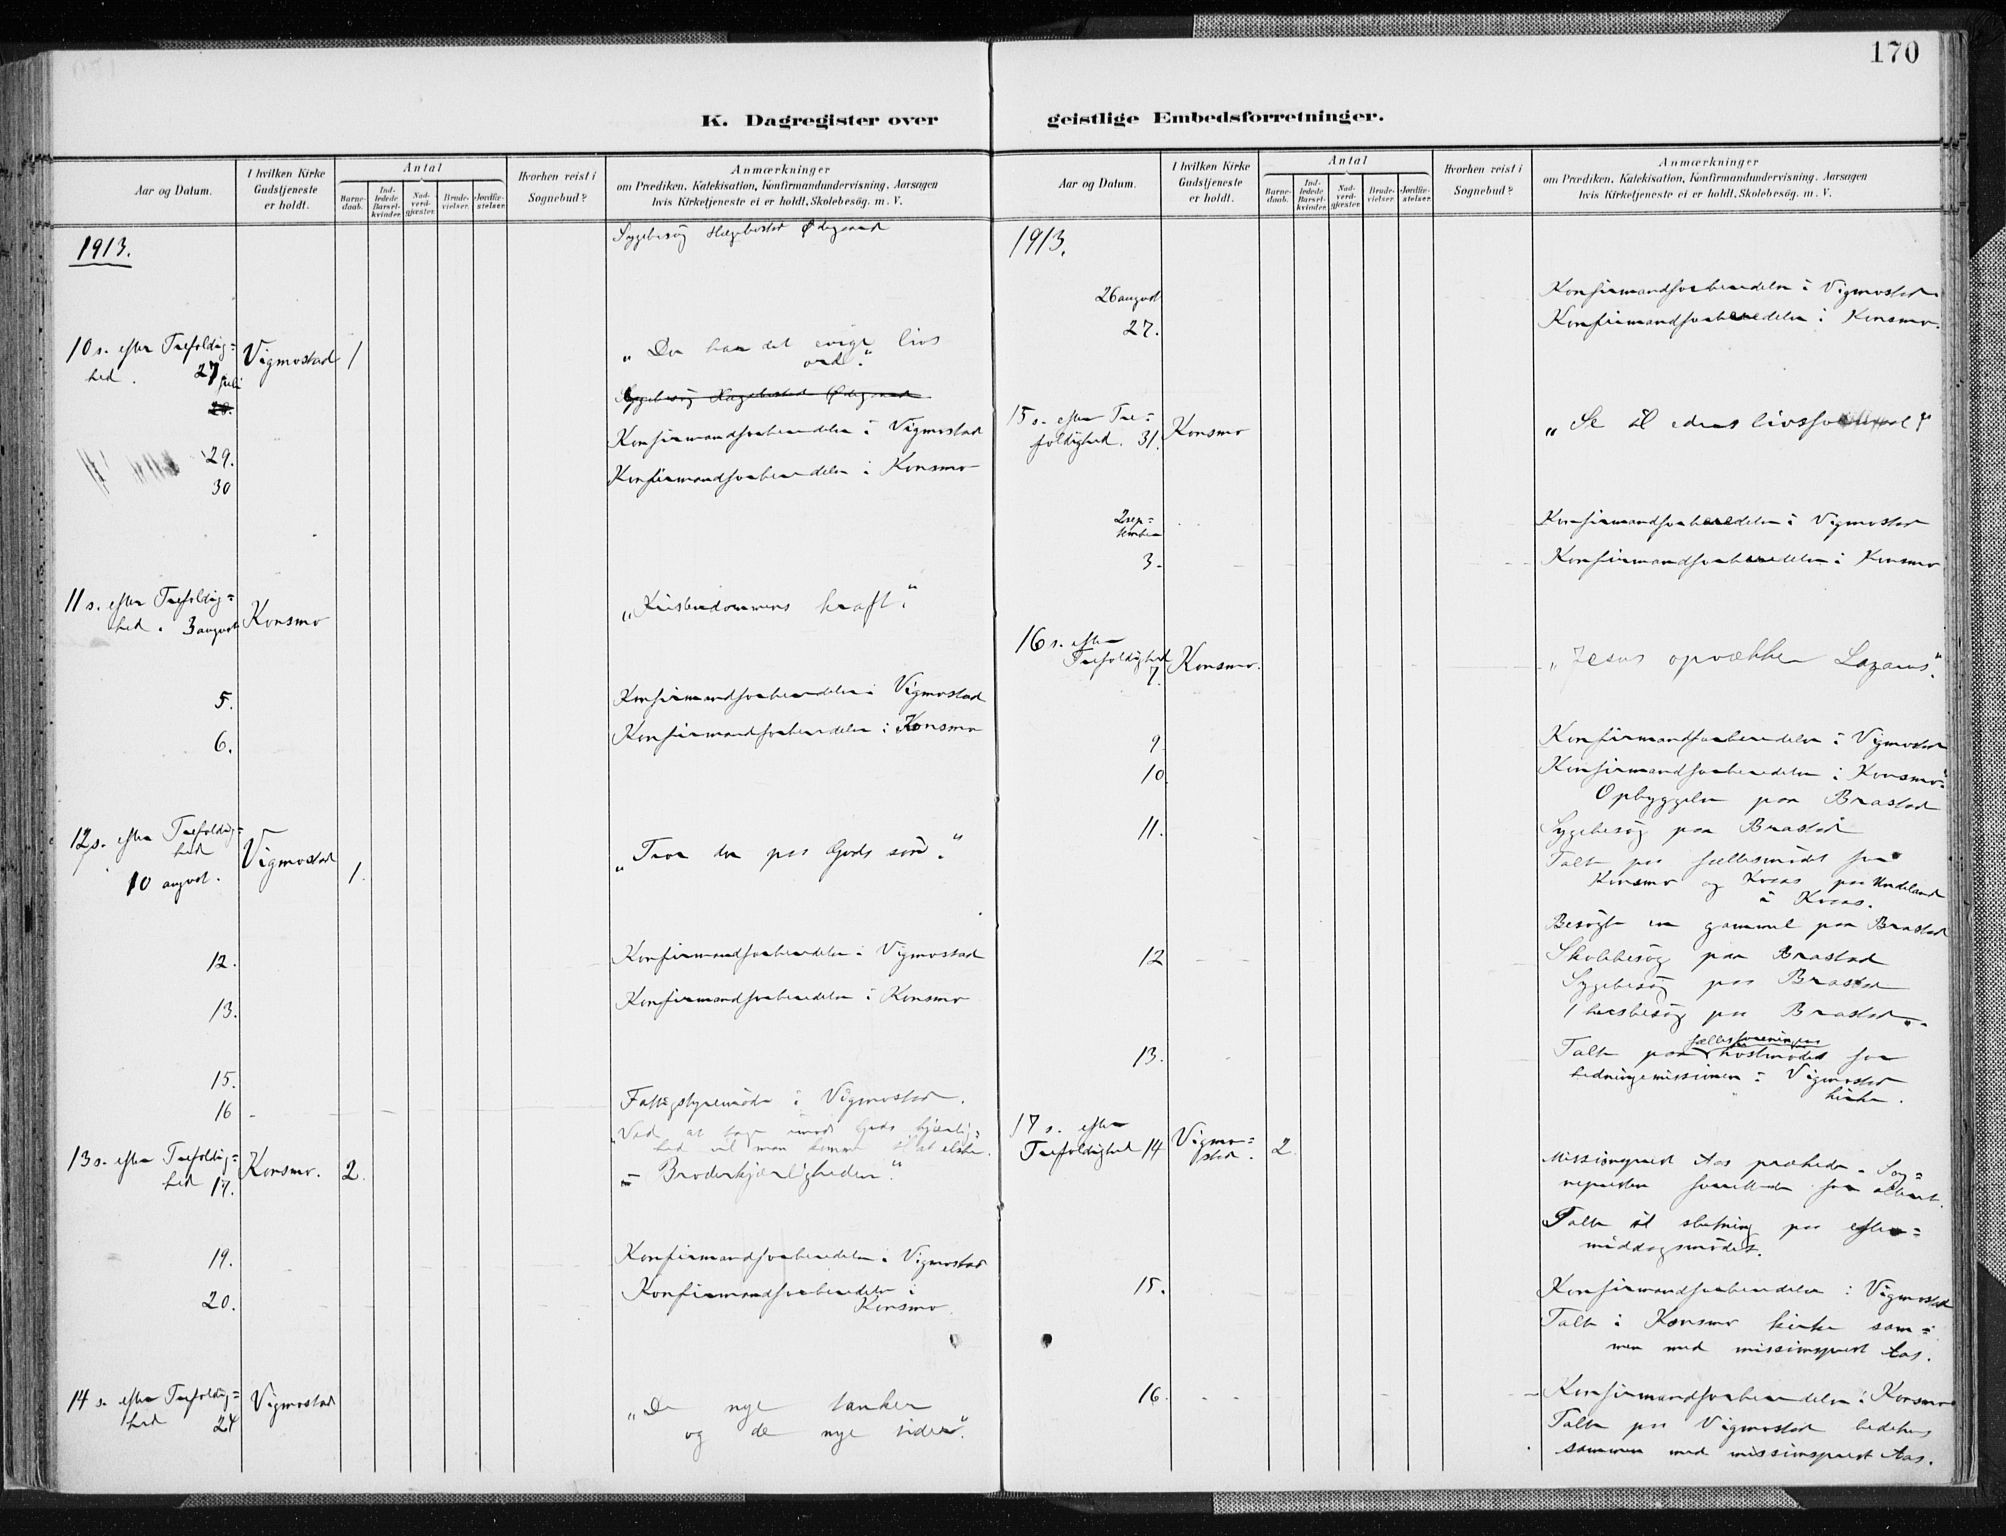 170
K. Dagregister over geistlige Embedsforretninger.
Aar og Datum.
I hvilken Kirke
Gudstjeneste
er holdt.
Antal
Barne-
daab.
Ind-
ledede
Barsel-
kvinder.
Nad-
verd-
gjæster.
Brude-
vielser.
Jordfæ-
stelser.
Hvorhen reist i
Sognebud?
Anmærkninger
om Prædiken, Katekisation, Konfirmandundervisning, Aarsagen
hvis Kirketjeneste ei er holdt, Skolebesøg. m. V.
1913.
Sygebesøg Hægebostad Ødegaard
10 s. efter Trefoldig=
hed. 27 juli
Vigmostad 1
„Du har det evige livs
ord."
28.
Sygebesøg Hægebostad Ødegaard
29.
Konfirmandforberedelse i Vigmostad
30
Konfirmandforberedelse i Konsmo
11 s. efter Trefoldig=
hed. 3 august
Konsmo
„Kristendommens kraft."
5.
Konfirmandforberedelse i Vigmostad
6.
Konfirmandforberedelse i Konsmo
12 s. efter Trefoldig=
hed
10 august.
Vigmostad 1.
„Tror du paa Guds søn."
12.
Konfirmandforberedelse i Vigmostad
13.
Konfirmandforberedelse i Konsmo
15.
16
Fattigstyremøde i Vigmostad.
13 s. efter Trefoldig=
hed 17.
Konsmo. 2.
„Ved at tage imod Guds kjærlig=
hed vil man komme til at elske.
– Broderkjærligheden."
19.
Konfirmandforberedelse i Vigmostad
20.
Konfirmandforberedelse i
Konsmo.
14 s. efter Trefoldig=
hed 24
Vigmostad
„De nye tanker
og de nye sider".
Aar og Datum.
I hvilken Kirke
Gudstjeneste
er holdt.
Antal
Barne-
daab.
Ind-
ledede
Barsel-
kvinder.
Nad-
verd-
gjæster.
Brude-
vielser.
Jordfæ-
stelser.
Hvorhen reist i
Sognebud?
Anmærkninger
om Prædiken, Katekisation, Konfirmandundervisning, Aarsagen
hvis Kirketjeneste ei er holdt, Skolebesøg. m. V.
1913.
26 august
Konfirmandforberedelse i Vigmostad.
27.
Konfirmandforberedelse i Konsmo.
15 s. efter Tre=
foldighed. 31.
Konsmo
„Se til eders
2 sep=
tember
Konfirmandforberedelse i Vigmostad
3.
Konfirmandforberedelse i Konsmo
16 s. efter
Trefoldighed
7.
Konsmo.
„Jesus opvækker Lazarus".
9
Konfirmandforberedelse i Vigmostad
10
Konfirmandforberedelse i Konsmo
Opbyggelse paa Brastad
11.
Sygebesøg paa Brastad
Talte paa fællesmødet for
Konsmo og Kvaas paa
i Kvaas.
Besøgte en gammel paa Brastad
12
Skolebesøg paa Brastad
Sygebesøg paa Brastad
1 husbesøg paa Brastad.
13.
Talte paa høstmødet for
hedningemissionen i Vigmostad
kirke.
17 s. efter
Trefoldighed 14
Vigmo=
stad. 2.
Missionsprest Aas prækede. Sog=
nepresten forrettede for alteret.
Talte til slutning paa efter=
middagsmødet.
15.
Konfirmandforberedelse i Vigmostad
Talte i Konsmo kirke sam=
men med missionsprest Aas.
16.
Konfirmandforberedelse i Konsmo
Talte paa Vigmostad bedehus
sammen med missionsprest Aas.